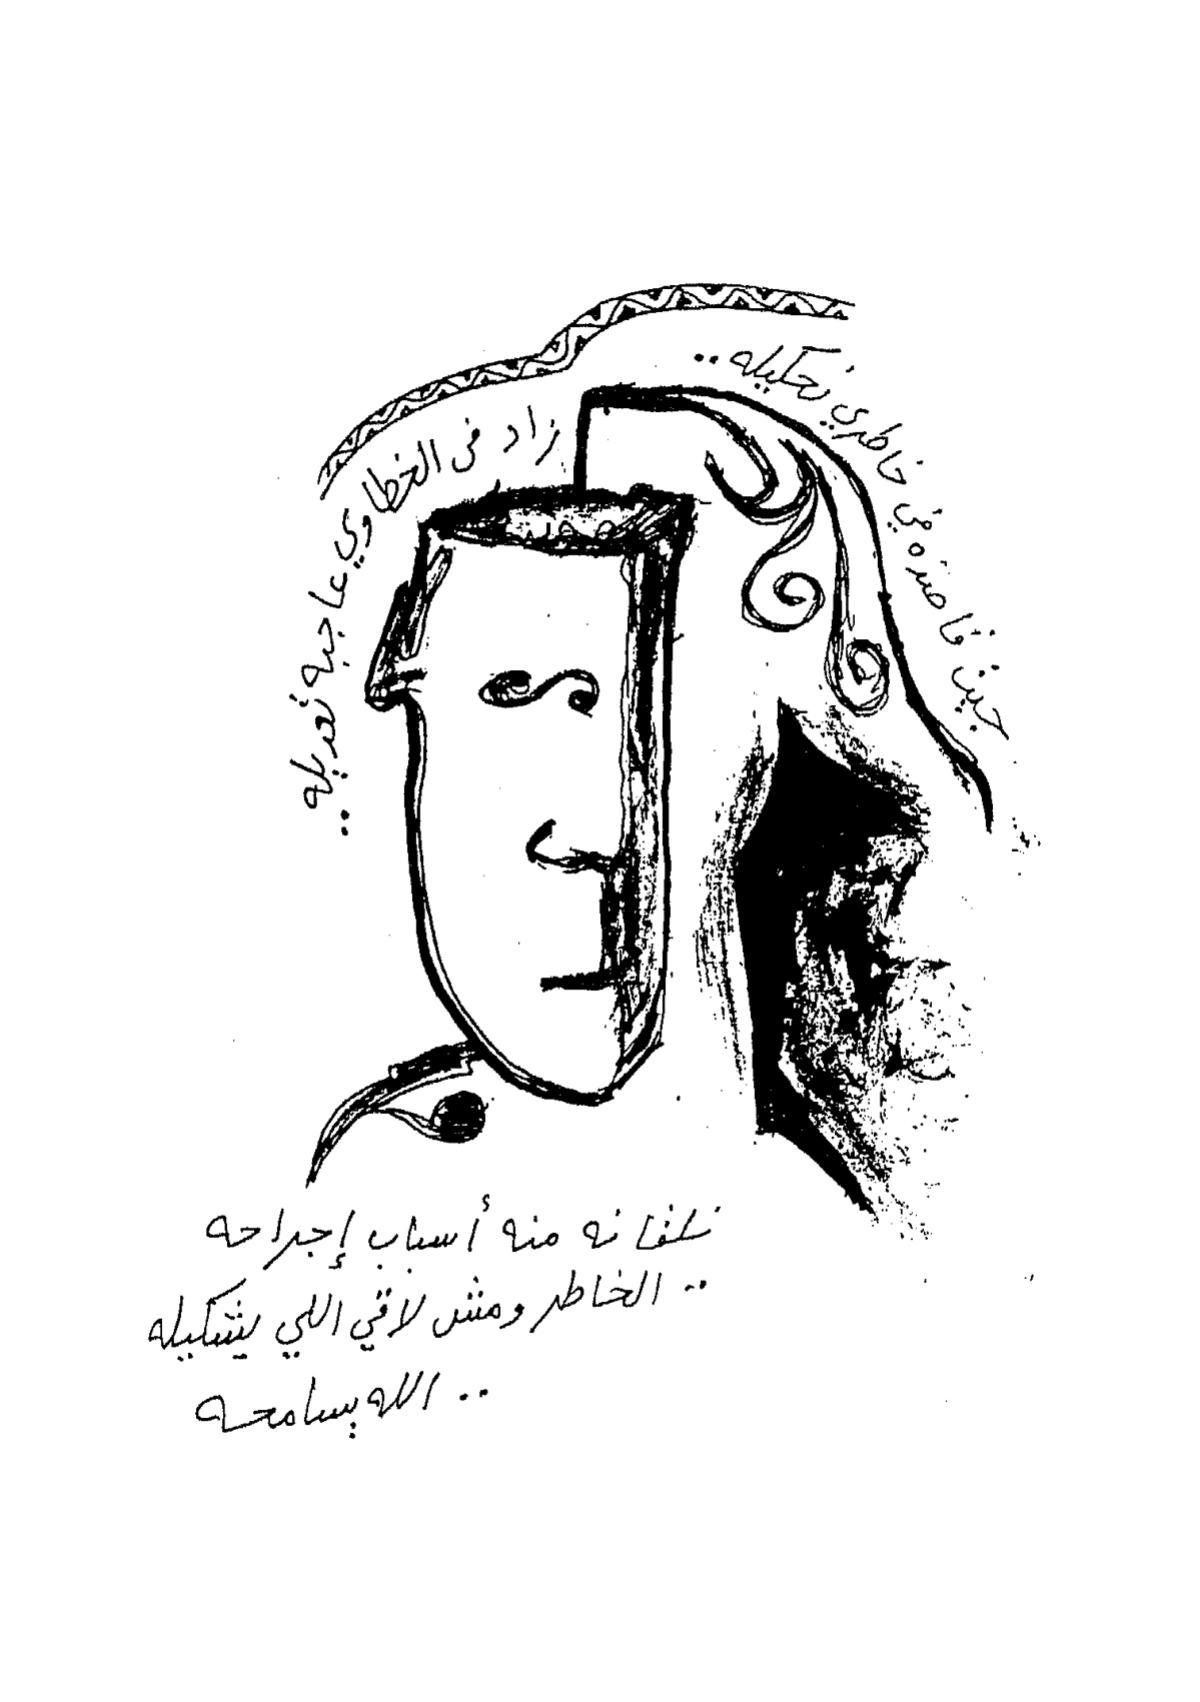 جيت قاصده في خاطري نحكيله ..
زاد في الخطاوي عاجبه تعديله ..
نلقانه منه أسباب إجراحه
.. الخاطر ومش لاقي اللي يشكيله
.. الله يسامحه